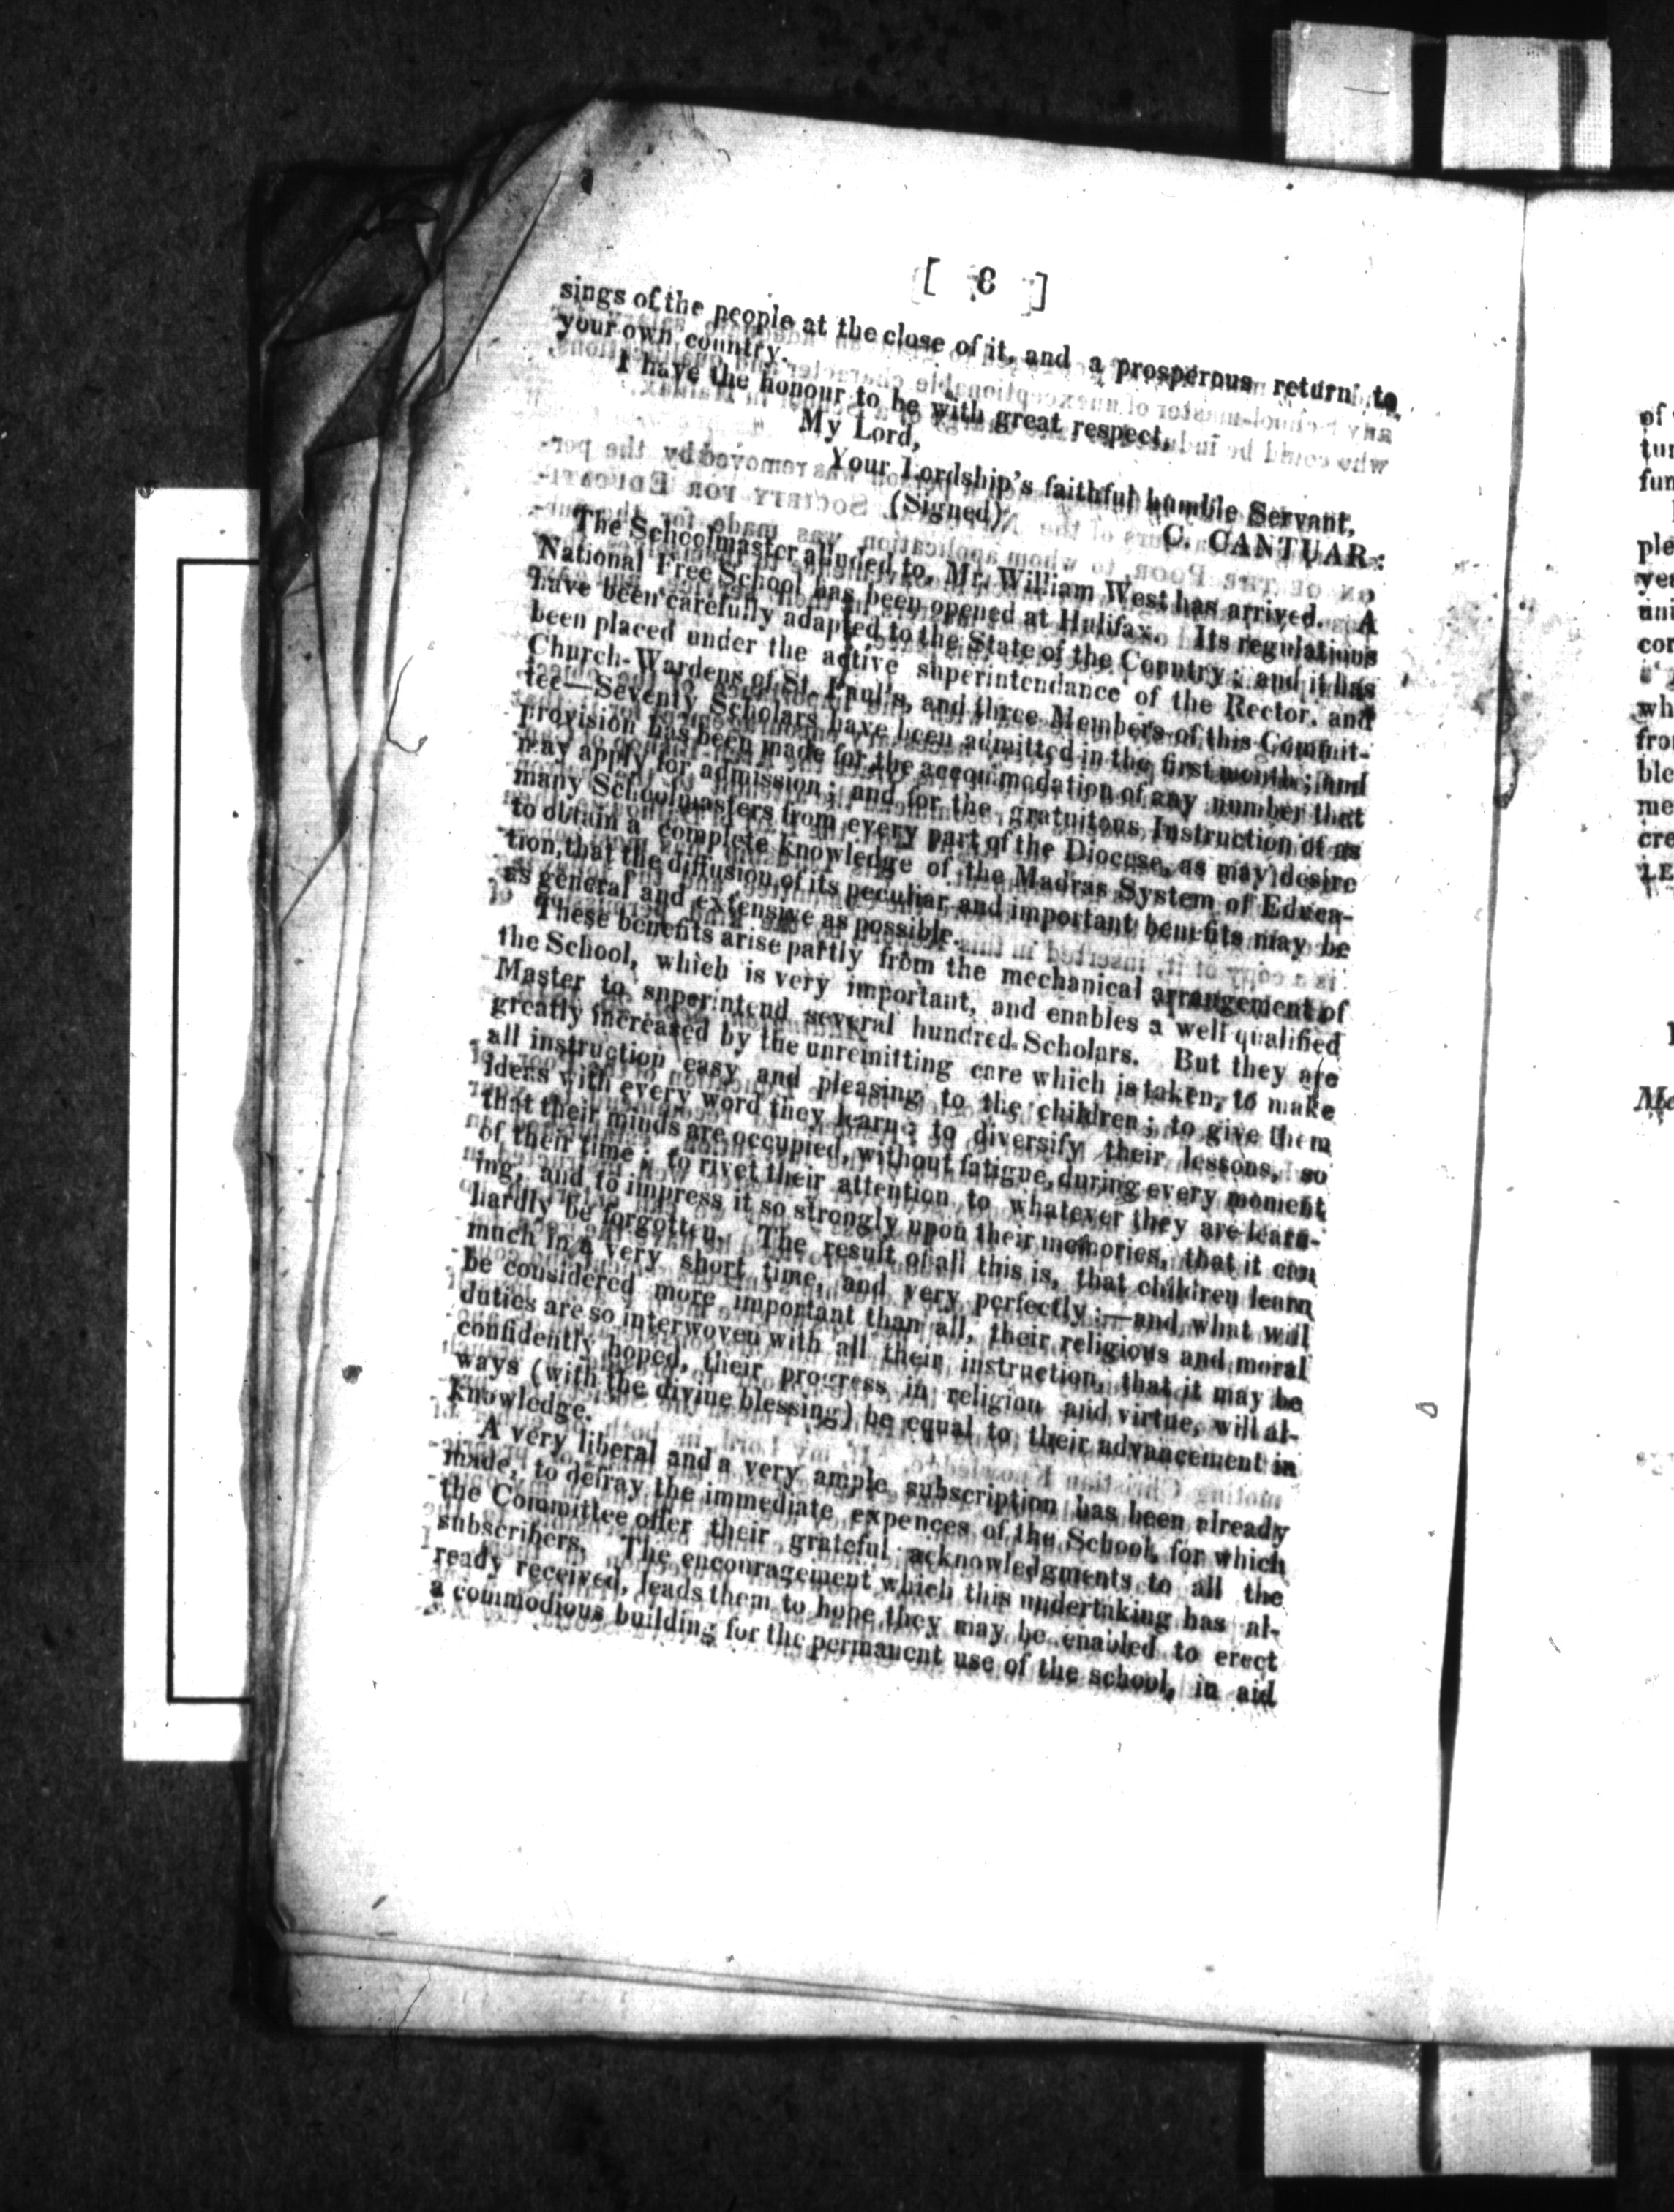 [ 8 ]
sings of the people at the close of it, and a prosperous return to
your own country.
I have the honour to be with great respect,
My Lord,
Your Lordship's faithful humble Servant,
(Signed) C. CANTUAR:
The Schoolmaster alluded to, Mr. William West has arrived. A
National Free School has been opened at Halifax. Its regulations
have been carefully adapted to the State of the Country; and it has
been placed under the active superintendance of the Rector. and
Church-Wardens of St. Paul's, and three Members of this Commit-
tee—Seventy Scholars have been admitted in the first month; and
provision has been made for the accommodation of any number that
may apply for admission; and for the gratuitous Instruction of as
many Schoolmasters from every part of the Diocese, as may desire
to obtain a complete knowledge of the Madras System of Educa-
tion, that the diffusion of its peculiar and important benefits may be
as general and extensive as possible.
These benefits arise partly from the mechanical arrangement of
the School, which is very important, and enables a well qualified
Master to superintend several hundred Scholars. But they are
greatly increased by the unremitting care which is taken, to make
all instruction easy and pleasing to the children; to give them
ideas with every word they learn; to diversify their lessons, so
that their minds are occupied, without fatigue, during every moment
of their time; to rivet their attention to whatever they are learn-
ing, and to impress it so strongly upon their memories, that it can
hardly be forgotten. The result of all this is, that children learn
much in a very short time, and very perfectly;—and what will
be considered more important than all, their religious and moral
duties are so interwoven with all their instruction, that it may be
confidently hoped, their progress in religion and virtue, will al-
ways (with the divine blessing) be equal to their advancement in
knowledge.
A very liberal and a very ample subscription has been already
made, to defray the immediate expences of the School, for which
the Committee offer their grateful acknowledgments to all the
subscribers. The encouragement which this undertaking has al-
ready received, leads them to hope they may be enabled to erect
a commodious building for the permanent use of the school, in aid